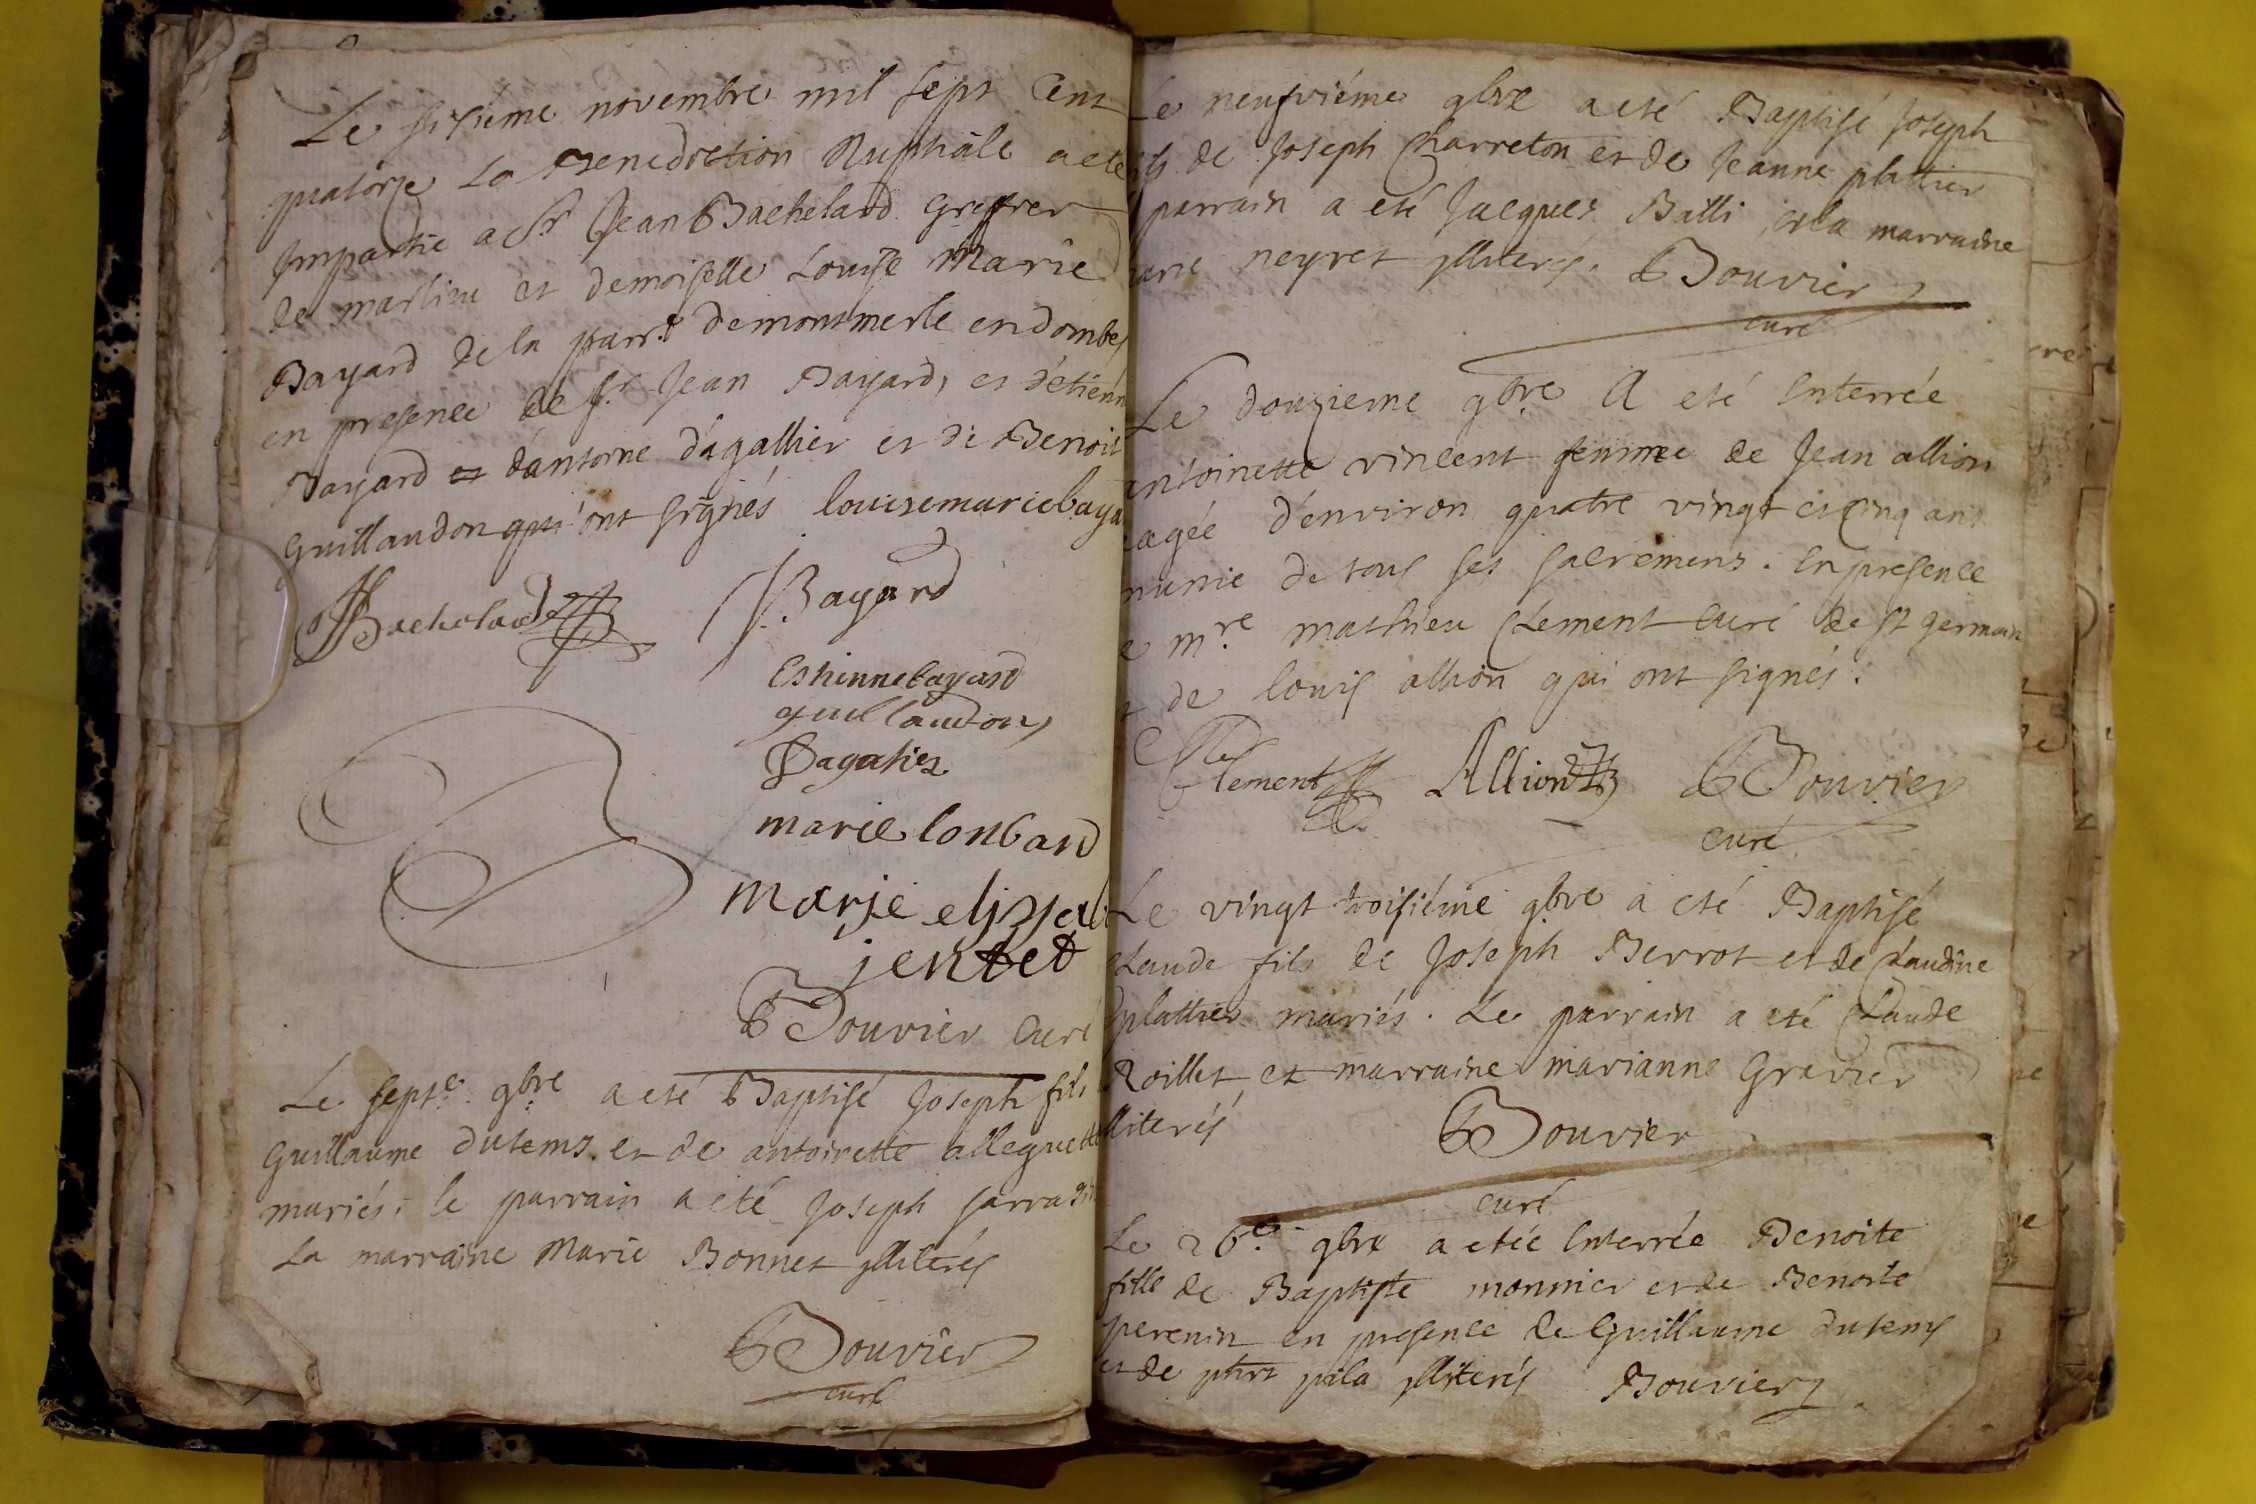 Le sisiéme novembre mil sept Cent
quatorze La Benediction Nuptiale a eté
Impartie a Sr Jean Bachelard Greffier
de marlieu et demoiselle Louise Marie
Bayard de la parr. de montmerle en dombes
en presence de Sr. Jean Bayard, et d'étienn
Bayard d'antoine d'agallier et de Benoit
Guillaudon qui ont signés louise marie baya
Bachelard Bayard
Estienne bayard
guillaudon
Dagalier
marie lonbard
marje elizab
jentet
Bouvier Curé
Le septe. 9bre a eté Baptisé Joseph fils
Guillaume dutems et de antoinette alleguette
mariés. le parrain a eté Joseph sarrazin
La marraine Marie Bonnet jlliterés
Bouvier
curé
Le neufviéme 9bre a eté Baptisé Joseph
fils de Joseph Charreton et de Jeanne plattier
parrain a eté Jacques Balli et la marraine
neyret jlliterés. Bouvier
curé
Le douzieme 9bre A eté Enterrée
antoinette vincent femme de Jean allion
agée d'environ quatre vingt et cinq ans
munie de tous ses sacremens. En presence
mre mathieu Clement curé de st germain
de louis allion qui ont signés.
Clement Allion Bouvier
curé
Le vingt troisiéme 9bre a eté Baptisé
Claude fils de Joseph Berrot et de Claudine
plattier mariés. Le parrain a eté Claude
Roillet et marraine marianne Gravier
lliterés Bouvier
curé
Le 26e. 9bre a etée Enterrée Benoite
fille de Baptiste monnier et de Benoite
perenin en presence de Guillaume dutems
et de pila jlliterés Bouvier